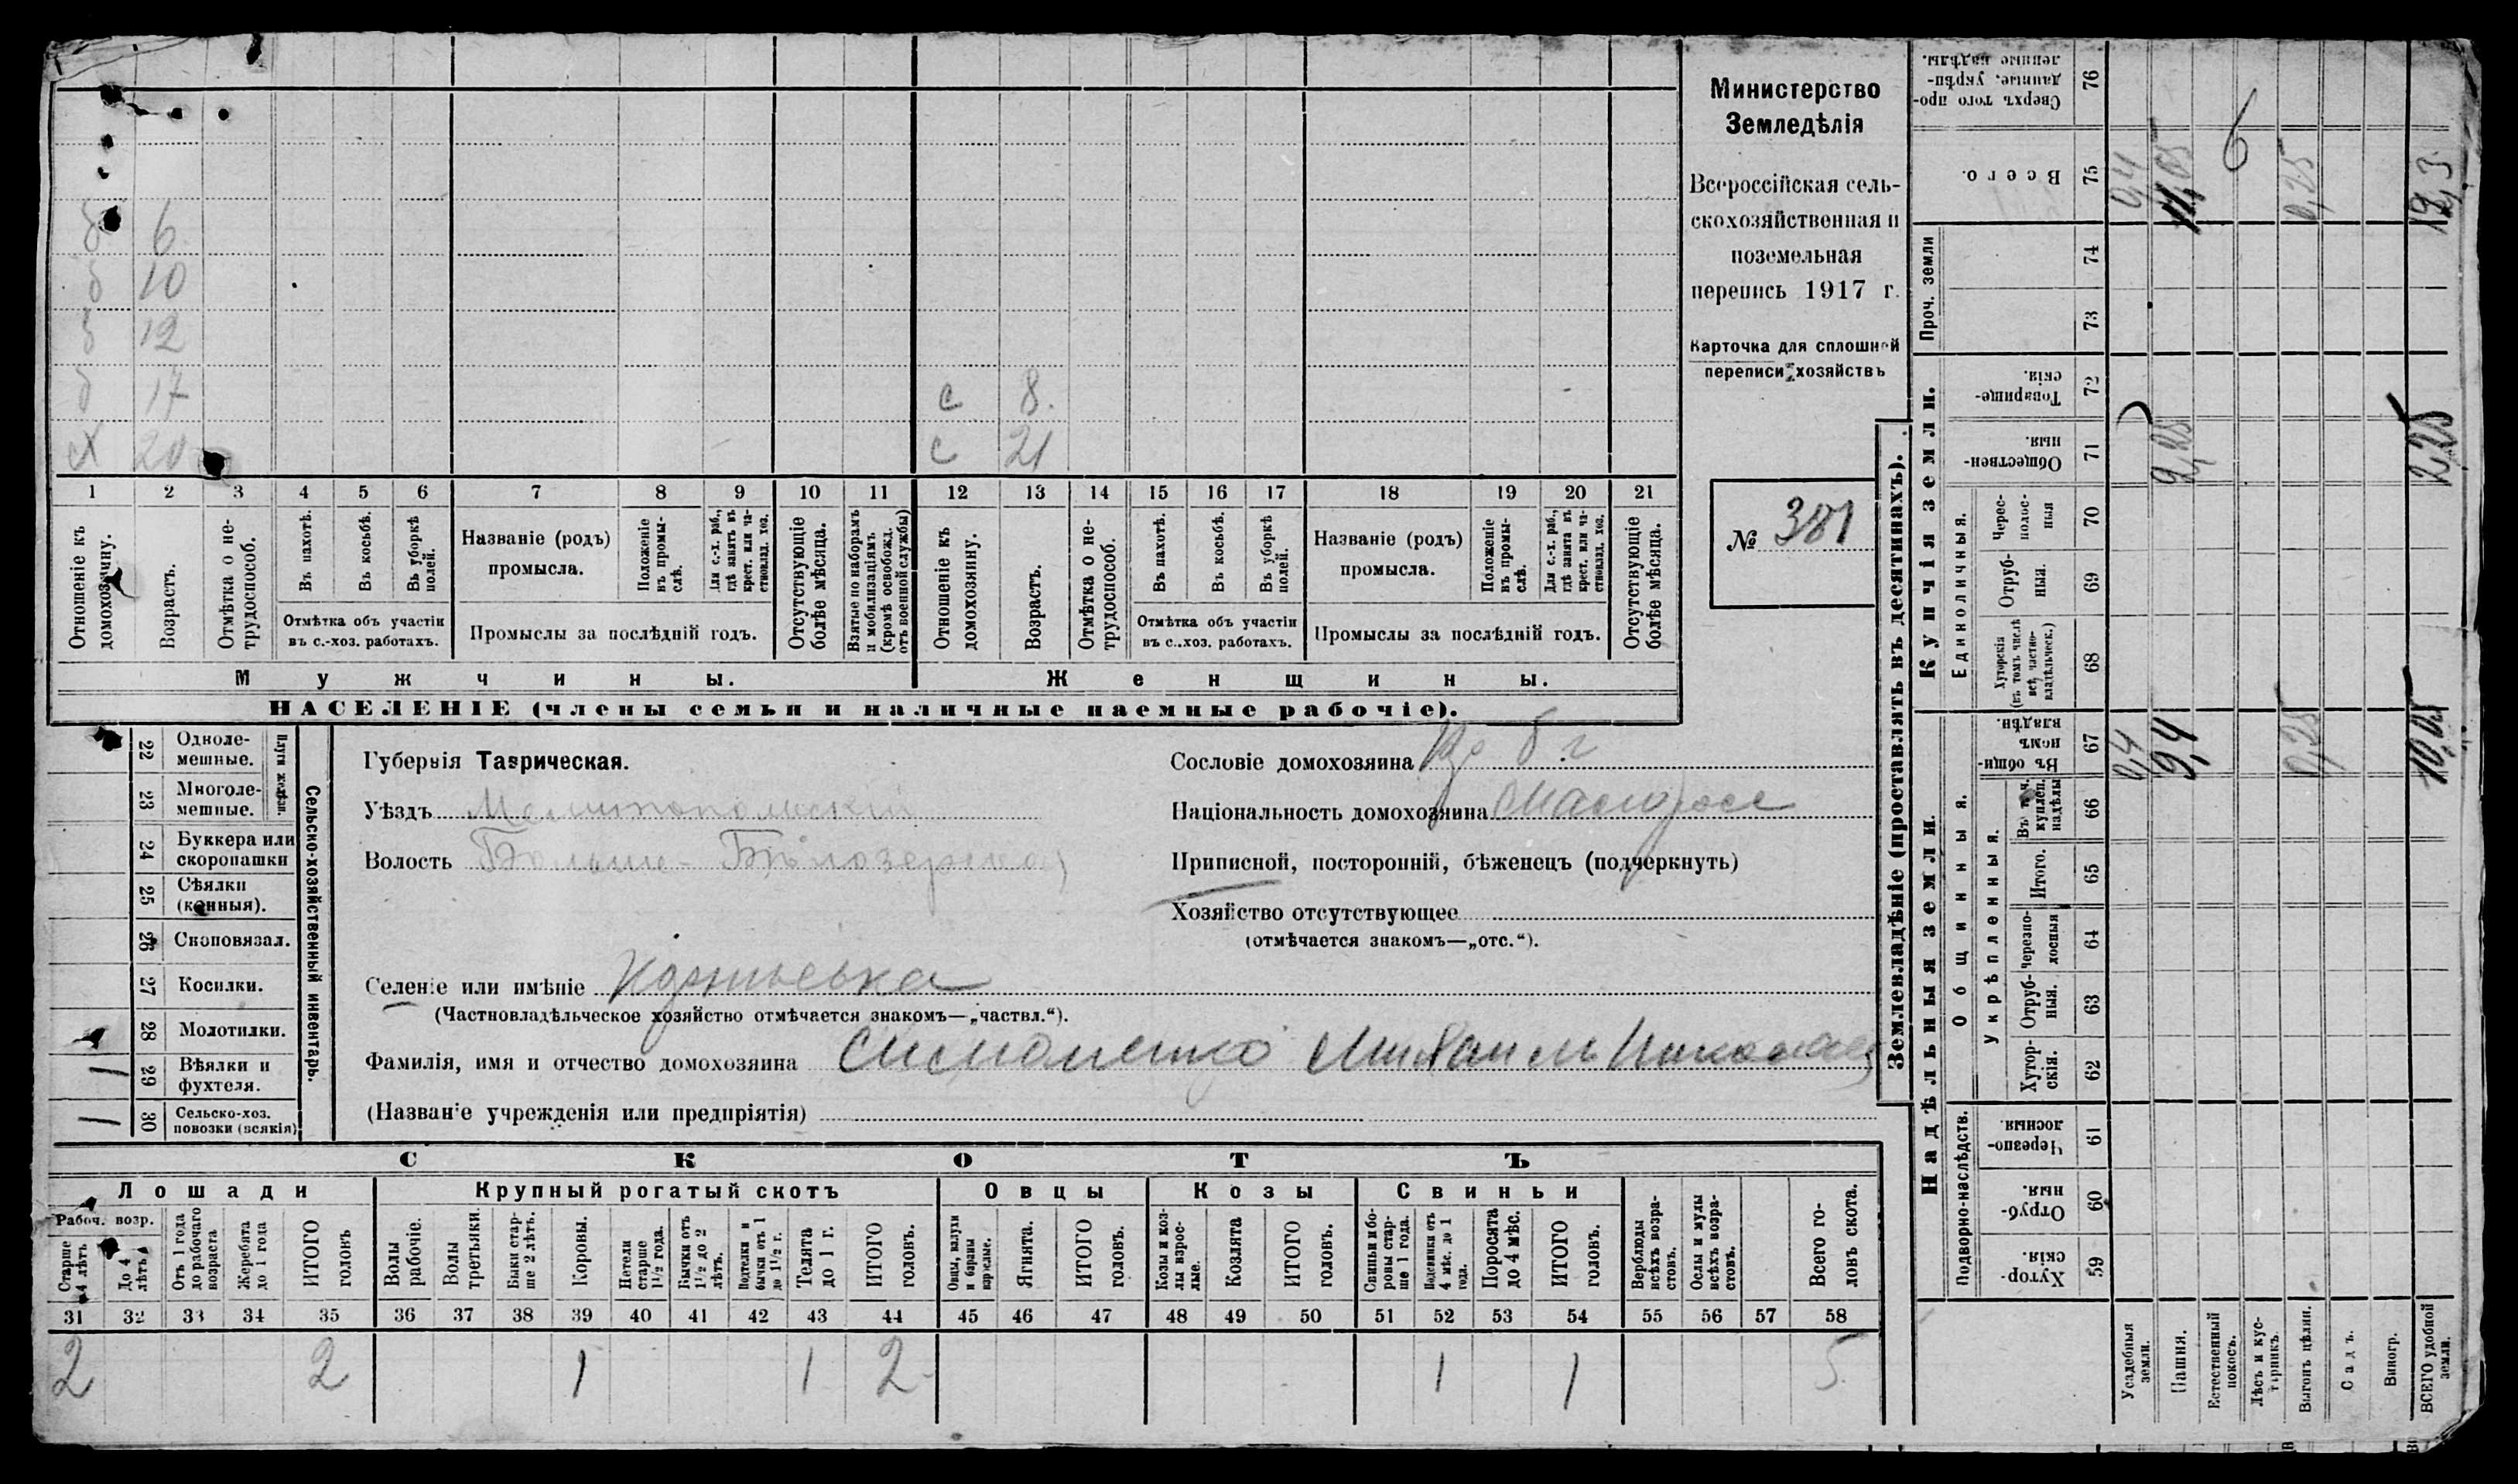 Министерство
Земледѣлія
Всероссійская сель-
скохозяйственная и
поземельная
перепись 1917 г.
Карточка для сплошной
переписи хозяйствъ
№ 381
б 6
б 10
б 12
б 17 с 8
х 20 с 21
1 2 3 4 5 6 7 8 9 10 11 12 13 14 15 16 17 18 19 20 21
Отношеніе къ домохозяину.
Возрастъ.
Отмѣтка о не-трудоспособ.
Въ пахотѣ.
Въ косьбѣ.
Въ уборкѣ полей.
Отмѣтка объ участіи
въ с.-хоз. работахъ.
Названіе (родъ)
промысла.
Положеніе въ промы-слѣ.
Для с.-х. раб., гдѣ занятъ въ крест. или ча-стновлад. хоз.
Промыслы за послѣдній годъ.
Отсутствующіе болѣе мѣсяца.
Взятые по наборамъ и мобилизаціямъ (кромѣ освобожд. отъ военной службы)
Отношеніе къ домохозяину.
Возрастъ.
Отмѣтка о не-трудоспособ.
Въ пахотѣ.
Въ косьбѣ.
Въ уборкѣ полей.
Отмѣтка объ участіи
въ с..хоз. работахъ.
Названіе (родъ)
промысла.
Положеніе въ промы-слѣ.
Для с.-х. раб., гдѣ занята въ крест. или ча-стновлад. хоз.
Промыслы за послѣдній годъ.
Отсутствующіе болѣе мѣсяца.
Мужчины. Женщины.
НАСЕЛЕНІЕ (члены семьи и наличные наемные рабочіе).
Сельско-хозяйственный инвентарь.
Плуги желѣзн.
22 Одноле-мешные.
23 Многоле-мешные.
24 Буккера или скоропашки
25 Сѣялки (конныя).
26 Сноповязал.
27 Косилки.
28 Молотилки.
29 Вѣялки и фухтеля. 1
30 Сельско-хоз. повозки (всякія) 1
Губернія Таврическая.
Уѣздъ Мелитопольскій
Волость Больше-Бѣлозерская
Сословіе домохозяина
Національность домохозяина Малоросс
Приписной, посторонній, бѣженецъ (подчеркнуть)
Хозяйство отсутствующее
(отмѣчается знакомъ—„отс.“).
Селеніе или имѣніе
(Частновладѣльческое хозяйство отмѣчается знакомъ—„частвл.“).
Фамилія, имя и отчество домохозяина Симоненко Михаилъ Николаев
(Названіе учрежденія или предпріятія)
СКОТЪ
Лошади Крупный рогатый скотъ Овцы Козы Свиньи
Рабоч. возр.
Старше 4 лѣтъ
До 4 лѣтъ
Отъ 1 года до рабочаго возраста
Жеребята до 1 года
ИТОГО головъ
Волы рабочіе.
Волы третьяки.
Быки стар-ше 2 лѣтъ.
Коровы.
Нетели старше 1½ года.
Бычки отъ 1½ до 2 лѣтъ.
Подтелки и бычки отъ 1 до 1½ г.
Телята до 1 г.
ИТОГО головъ.
Овцы, валухи и бараны взрослые.
Ягнята.
ИТОГО головъ.
Козы и коз-лы взрос-лые.
Козлята
ИТОГО головъ.
Свиньи и бо-ровы стар-ше 1 года.
Подсвинки отъ 4 мѣс. до 1 года.
Поросята до 4 мѣс.
ИТОГО головъ.
Верблюды всѣхъ возра-стовъ.
Ослы и мулы всѣхъ возра-стовъ.
Всего го-ловъ скота.
31 32 33 34 35 36 37 38 39 40 41 42 43 44 45 46 47 48 49 50 51 52 53 54 55 56 57 58
2 2 1 1 2 1 1 5
Землевладѣніе (проставлять въ десятинахъ).
Надѣльныя земли.
Подворно-наслѣдств.
Хутор-скія. 59
Отруб-ныя. 60
Черезпо-лосныя. 61
Общинныя.
Укрѣпленныя.
Хутор-скія. 62
Отруб-ныя. 63
Черезпо-лосныя 64
Итого. 65
Въ т. ч. куплен. надѣлы 66
Въ общи-номъ владѣн. 67
0,4 9,4 0,25 10,05
Купчія земли.
Единоличныя.
Хуторскія (въ томъ числѣ всѣ частно-владѣльческ.) 68
Отруб-ныя. 69
Черес-полос-ныя 70
Обществен-ныя. 71
2,25 2,25
Товарище-скія. 72
Проч. земли
73 74
Всего. 75
0,4 0,25
Сверхъ того про-данные, укрѣп-ленные надѣлы. 76
6
Усадебныя земли.
Пашня.
Естественный покосъ.
Лѣсъ и кус-тарникъ.
Выгонъ цѣлин.
Садъ.
Виногр.
ВСЕГО удобной земли.